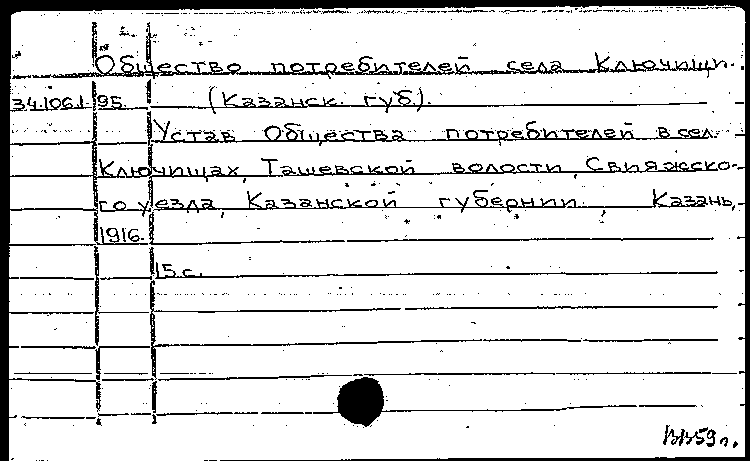 Общество потребителей села Ключищи.
34.106.1.95. (Казанск. губ.).
Устав Общества потребителей в сел.
Ключищах, Ташевской волости, Свияжско-
го уезда, Казанской губернии. Казань,
1916.
15 с.